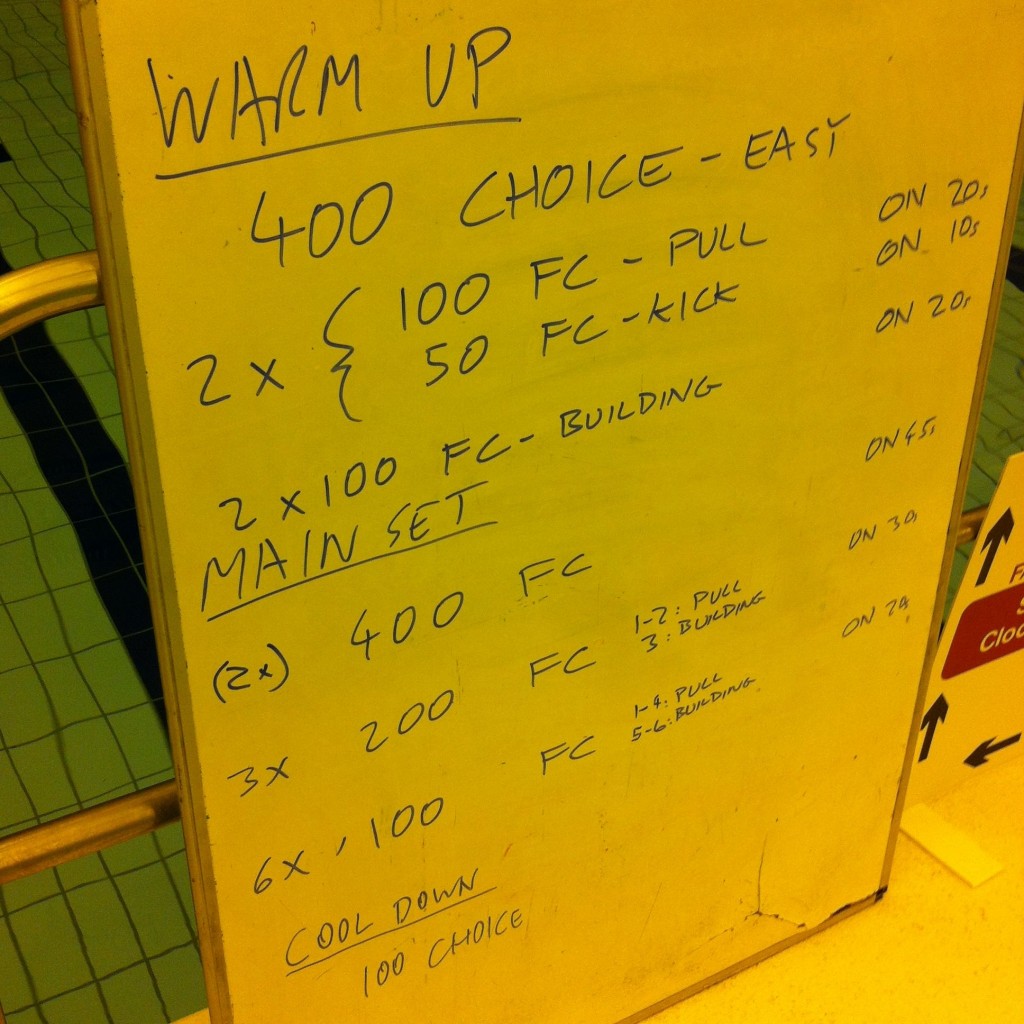 WARM UP
400 CHOICE - EASY
2 x { 100 FC - PULL ON 20s
50 FC - KICK ON 10s
2 x 100 FC - BUILDING ON 20s
MAIN SET
(2x) 400 FC ON 45s
3x 200 FC 1-2: PULL ON 30s
3: BUILDING
6x 100 FC 1-4: PULL ON 20s
5-6: BUILDING
COOL DOWN
100 CHOICE